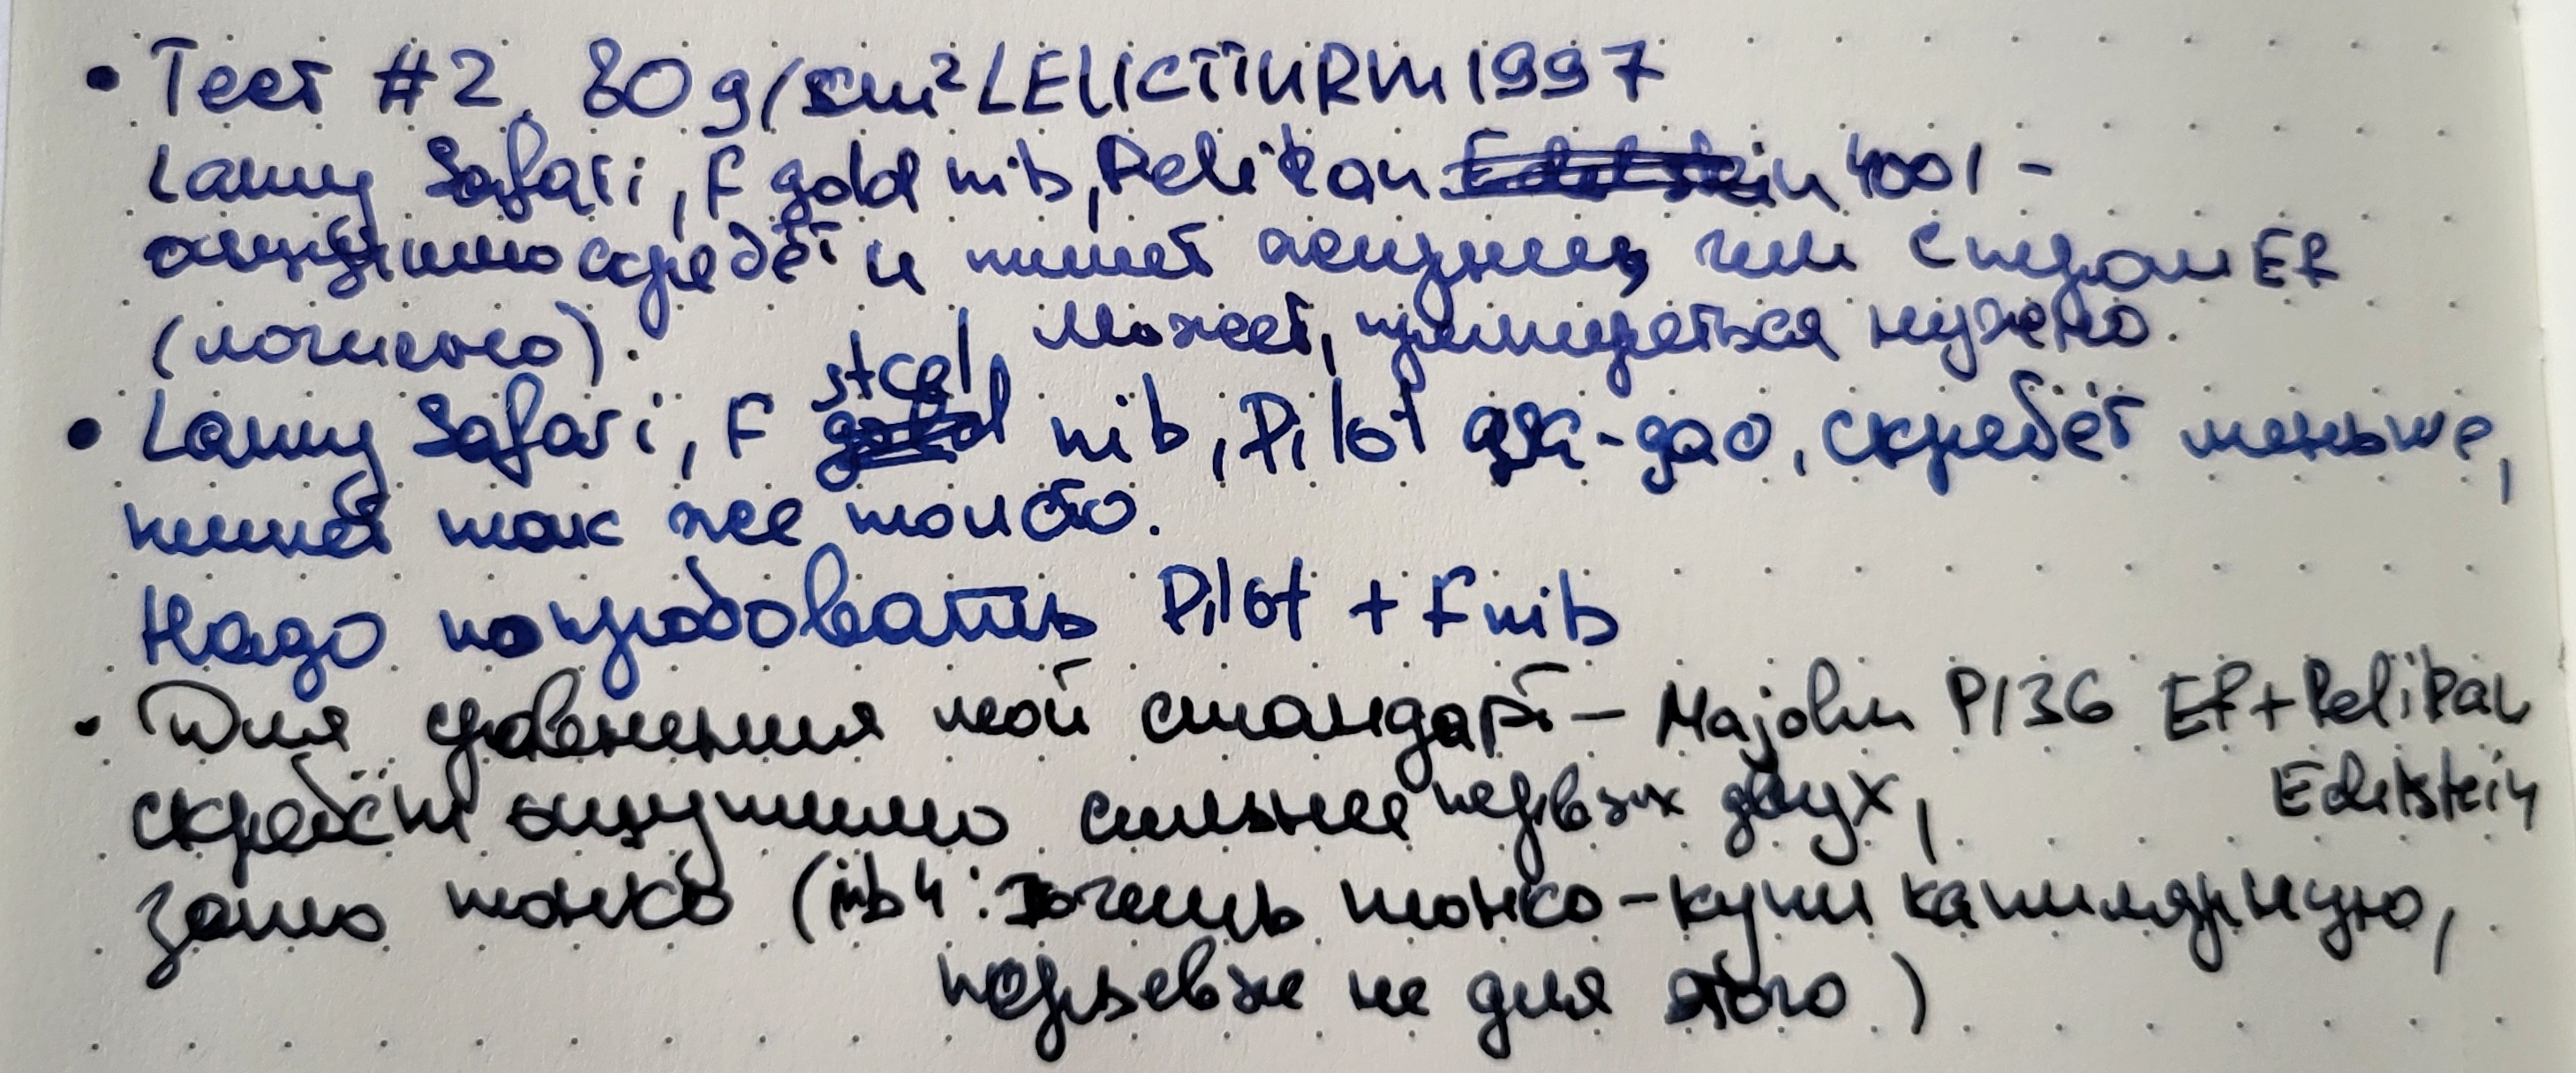 • Тест #2, 80 g/cm² LEUCTTURM 1997
Lamy Safari, F gold nib, Pelikan Edelstein 4001 -
ощутимо скребёт и пишет жирнее, чем с пером EF
(логично). Может, прищуреться нужно.
• Lamy Safari, F steel gold nib, Pilot, скребёт меньше,
пишет так же толсто.
Надо попробовать Pilot + F nib
• Для сравнения мой стандарт – Majohn P136 EF + Pelikan
Edelstein
скребёт ощутимо сильнее первых двух,
зато тонко (inb4: хочешь тонко - купи капилярную,
перьевые не для этого)